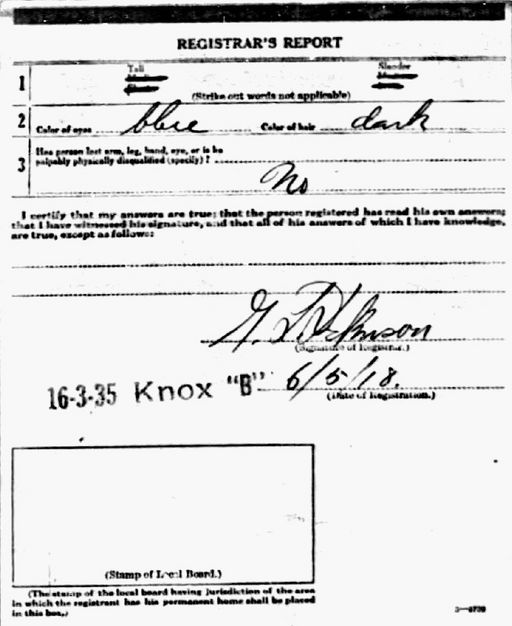 REGISTRAR'S REPORT
1 Tall Slender
(Strike out words not applicable)
2 Color of eyes blue Color of hair dark
Has person lost arm, leg, hand, eye, or is he
3 palpably physically disqualified (specify)?
No
I certify that my answers are true; that the person registered has read his own answers;
that I have witnessed his signature, and that all of his answers of which I have knowledge,
are true, except as follows:
(Signature of Registrar.)
16-3-35 Knox "B" 6/5/18.
(Date of Registration.)
(Stamp of Local Board.)
(The stamp of the local board having jurisdiction of the area
in which the registrant has his permanent home shall be placed
in this box.)